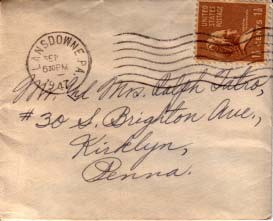 LANSDOWNE PA.
SEP
630PM
1941
UNITED STATES
POSTAGE
1½ CENTS 1½
Mr. and Mrs. Ralph
#30 S. Brighton Ave.,
Kirklyn,
Penna.